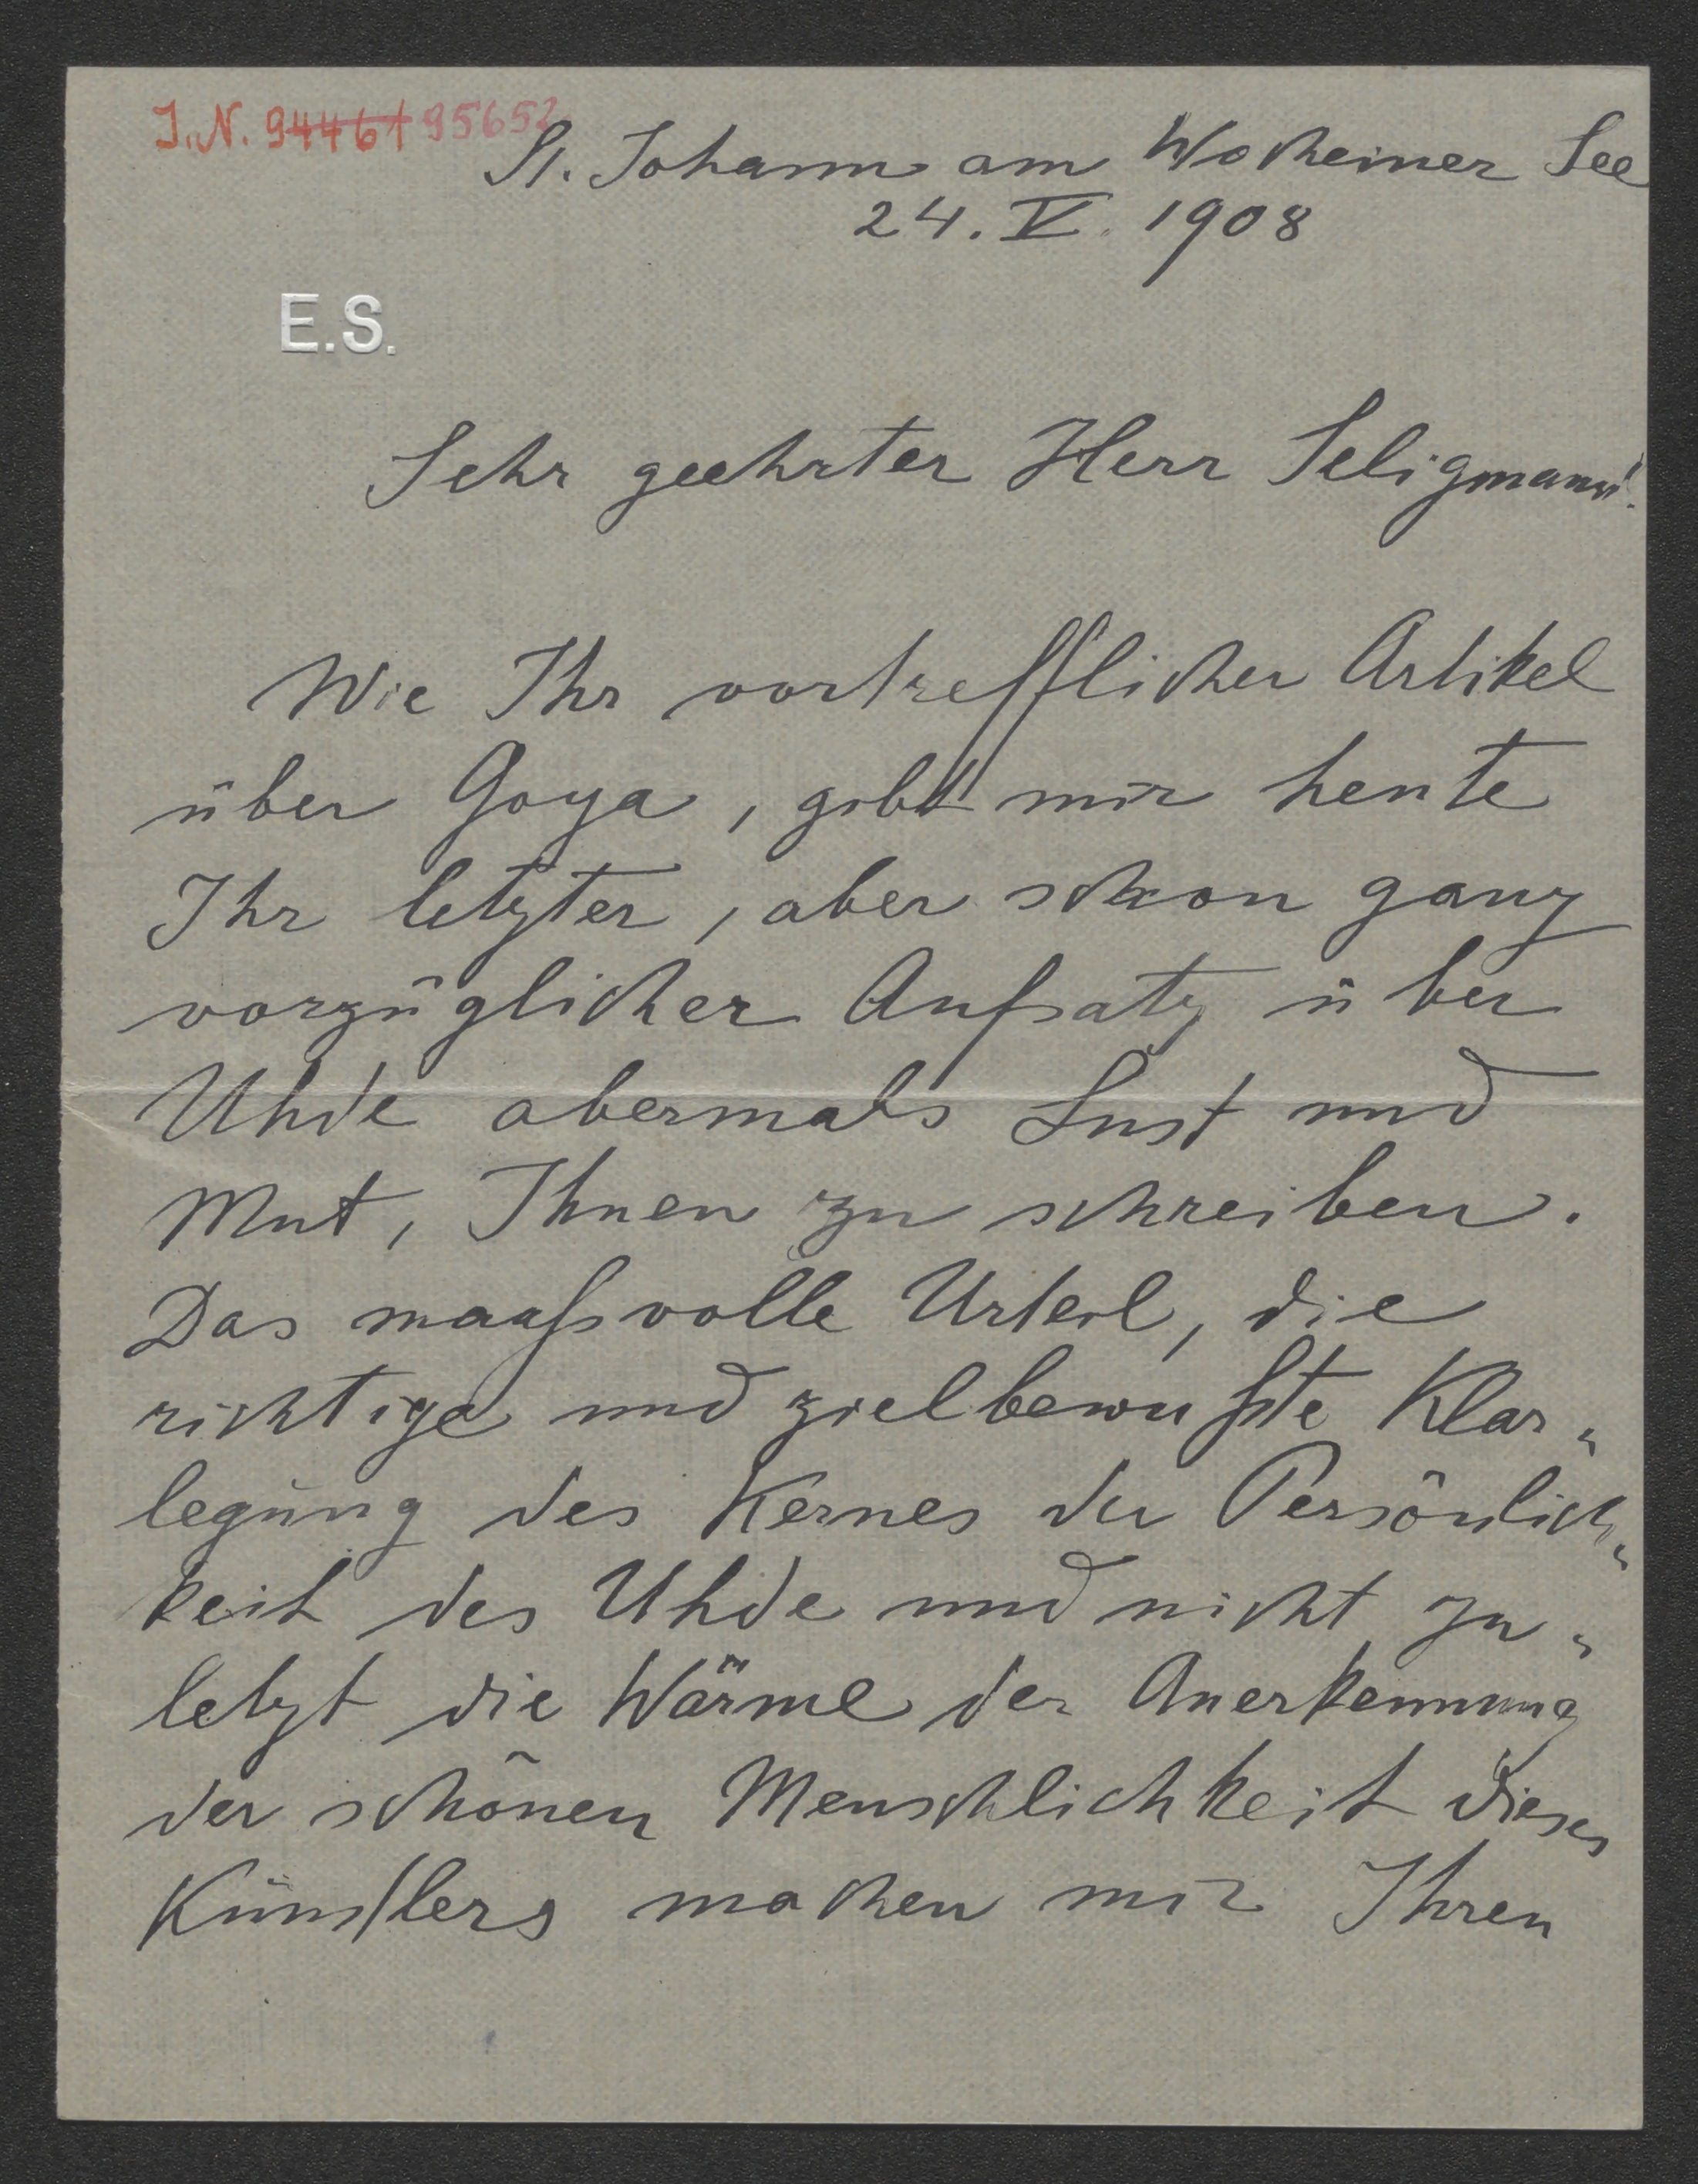 I.N. 94461 95652
St. Johann am Wocheiner See
24. V. 1908
E.S.
Sehr geehrter Herr Seligmann!
Wie Ihr vortrefflicher Artikel
über Goya, gibt mir heute
Ihr letzter, aber schon ganz
vorzüglicher Aufsatz über
Uhde abermals Lust und
Mut, Ihnen zu schreiben.
Das maaßvolle Urteil, die
richtige und zielbewußte Klar„
legung des Kernes der Persönlich„
keit des Uhde und nicht zu„
letzt die Wärme der Anerkennung
der schönen Menschlichkeit dieses
Künstlers machen mir Ihren